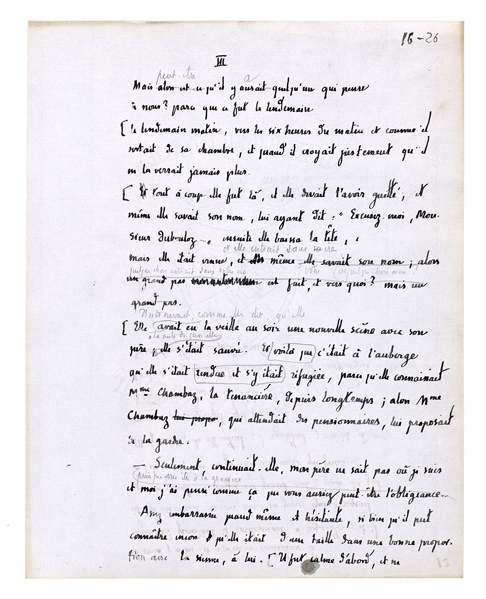 16-26
III
peut-être a
Mais alors est-ce qu'il y aurait quelqu'un qui pense
à nous? parce que ce fut le lendemain
[ le lendemain matin, vers les six heures du matin et comme il
sortait de sa chambre, et quand il croyait justement qu'il
ne la verrait jamais plus.
[ Et tout à coup elle fut là, et elle devait l'avoir guetté, et
même elle savait son nom, lui ayant dit: "Excusez-moi, Mon-
sieur Duboloz -, ensuite elle baissa la tête,
mais elle était venue, et même elle savait son nom; alors
un grand pas est fait, et vers quoi? mais un
grand pas.
comme elle dit, qu'elle
[ Elle avait eu la veille au soir une nouvelle scène avec son
père; elle s'était sauvée. Et voilà que c'était à l'auberge
qu'elle s'était rendue et s'y était réfugiée, parce qu'elle connaissait
Mme Chambaz, la tenancière, depuis longtemps; alors Mme
Chambaz, qui attendait des pensionnaires, lui proposait
de la garder.
— Seulement, continuait-elle, mon père ne sait pas où je suis
et moi j'ai pensé comme ça que vous auriez peut-être l'obligeance...
Assez embarrassée quand même et hésitante, si bien qu'il put
connaître encore qu'elle était d'une taille dans une bonne propor-
tion avec la sienne, à lui. [ Il fut calme d'abord, et ne
15